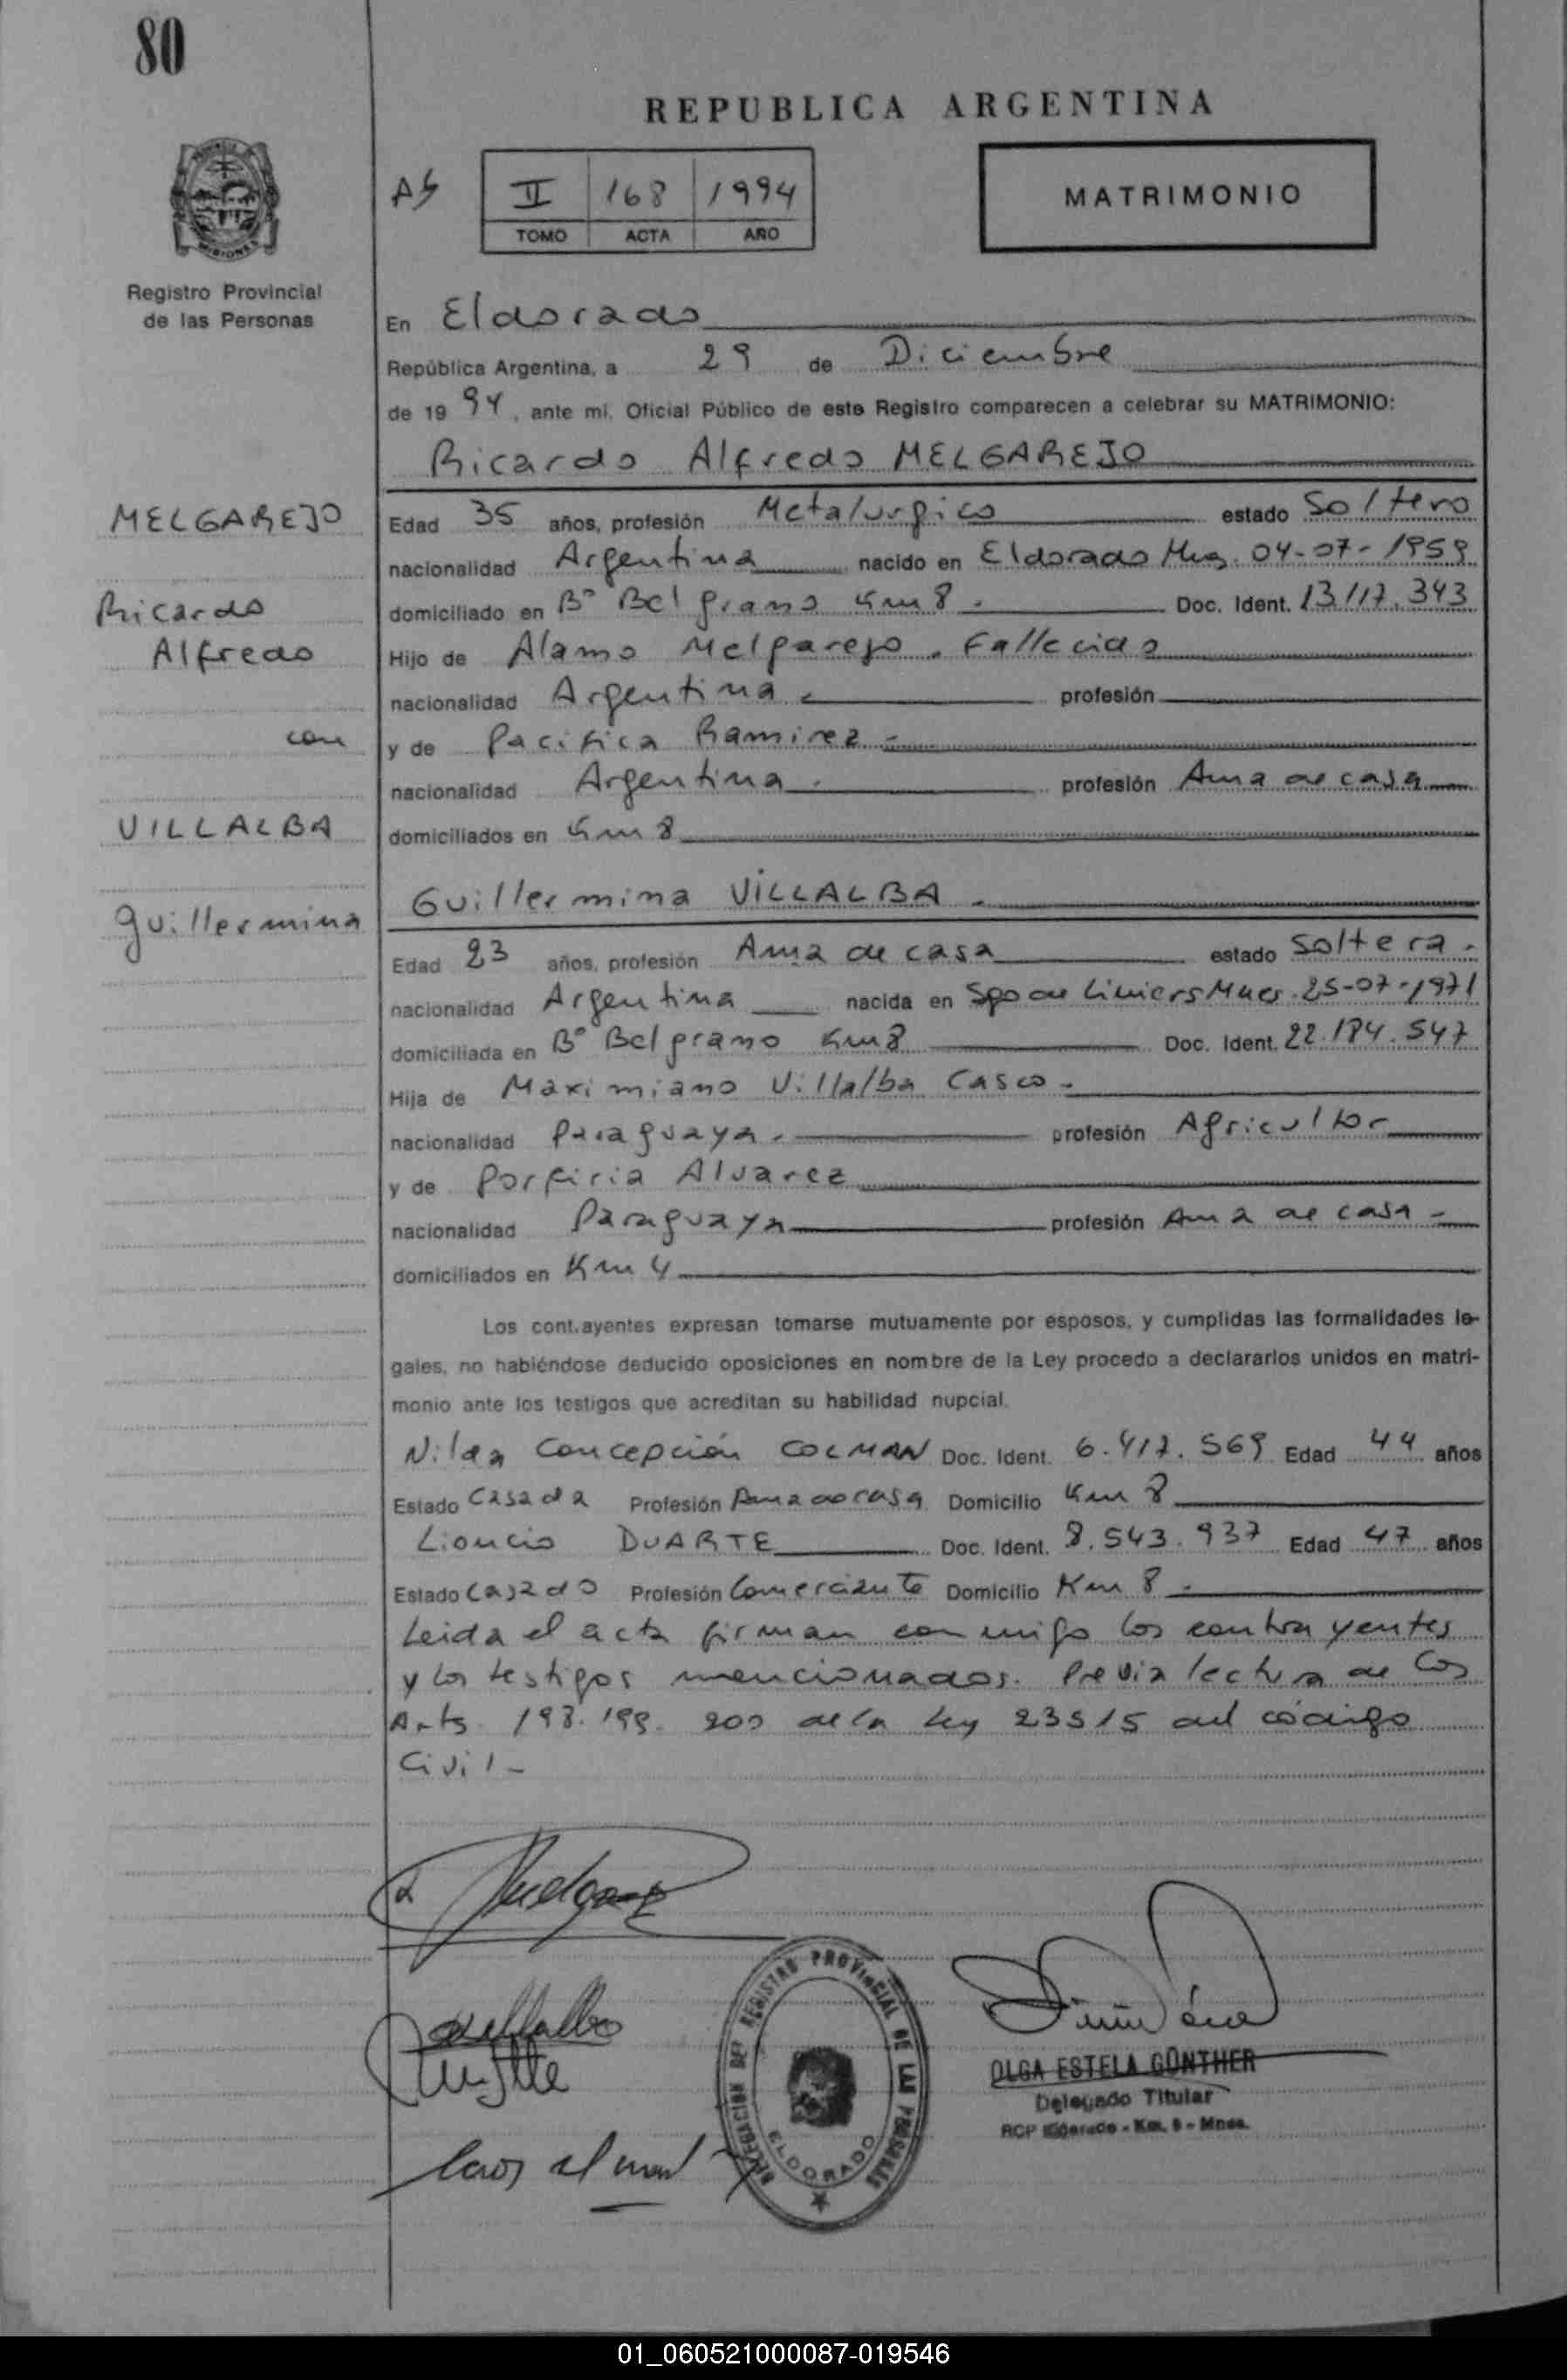 80
REPUBLICA ARGENTINA
II 168 1994
TOMO ACTA AÑO
MATRIMONIO
Registro Provincial
de las Personas
En Eldorado
República Argentina, a 29 de Diciembre
de 19 94, ante mí, Oficial Público de este Registro comparecen a celebrar su MATRIMONIO:
Ricardo Alfredo MELGAREJO
MELGAREJO
Ricardo
Alfredo
con
VILLALBA
Guillermina
Edad 35 años, profesión Metalurgico estado Soltero
nacionalidad Argentina nacido en Eldorado 04-07-1959
domiciliado en Bº Belgrano Km 8. Doc. Ident. 13.117.343
Hijo de Alamo Melgarejo. Fallecido
nacionalidad Argentina. profesión
y de Pacifica Ramirez -
nacionalidad Argentina. profesión Ama de casa
domiciliados en Km 8
Guillermina VILLALBA.
Edad 23 años, profesión Ama de casa estado Soltera.
nacionalidad Argentina nacida en Sgo de Liniers Mnes. 25-07-1971
domiciliada en Bº Belgrano Km 8 Doc. Ident. 22.184.547
Hija de Maximiano Villalba Casco.
nacionalidad Paraguaya. profesión Agricultor
y de Porfiria Alvarez
nacionalidad Paraguaya profesión Ama de casa -
domiciliados en Km 4
Los cont.ayentes expresan tomarse mutuamente por esposos, y cumplidas las formalidades le-
gales, no habiéndose deducido oposiciones en nombre de la Ley procedo a declararlos unidos en matri-
monio ante los testigos que acreditan su habilidad nupcial.
Nilda Concepción COLMAN Doc. Ident. 6.417.569 Edad 44 años
Estado Casada Profesión Ama de casa Domicilio Km 8
Lioncio DUARTE Doc. Ident. 8.543.937 Edad 47 años
Estado Casado Profesión Comerciante Domicilio Km 8.
Leida el acta firman conmigo los contrayentes
y los testigos mencionados. Previa lectura de los
Arts. 198. 199. 200 de la Ley 23515 del código
Civil -
DELEGACION DEL REGISTRO PROVINCIAL DE LAS PERSONAS
ELDORADO
OLGA ESTELA GÜNTHER
Delegado Titular
RCP Eldorado - Km. 8 - Mnes.
01_060521000087-019546